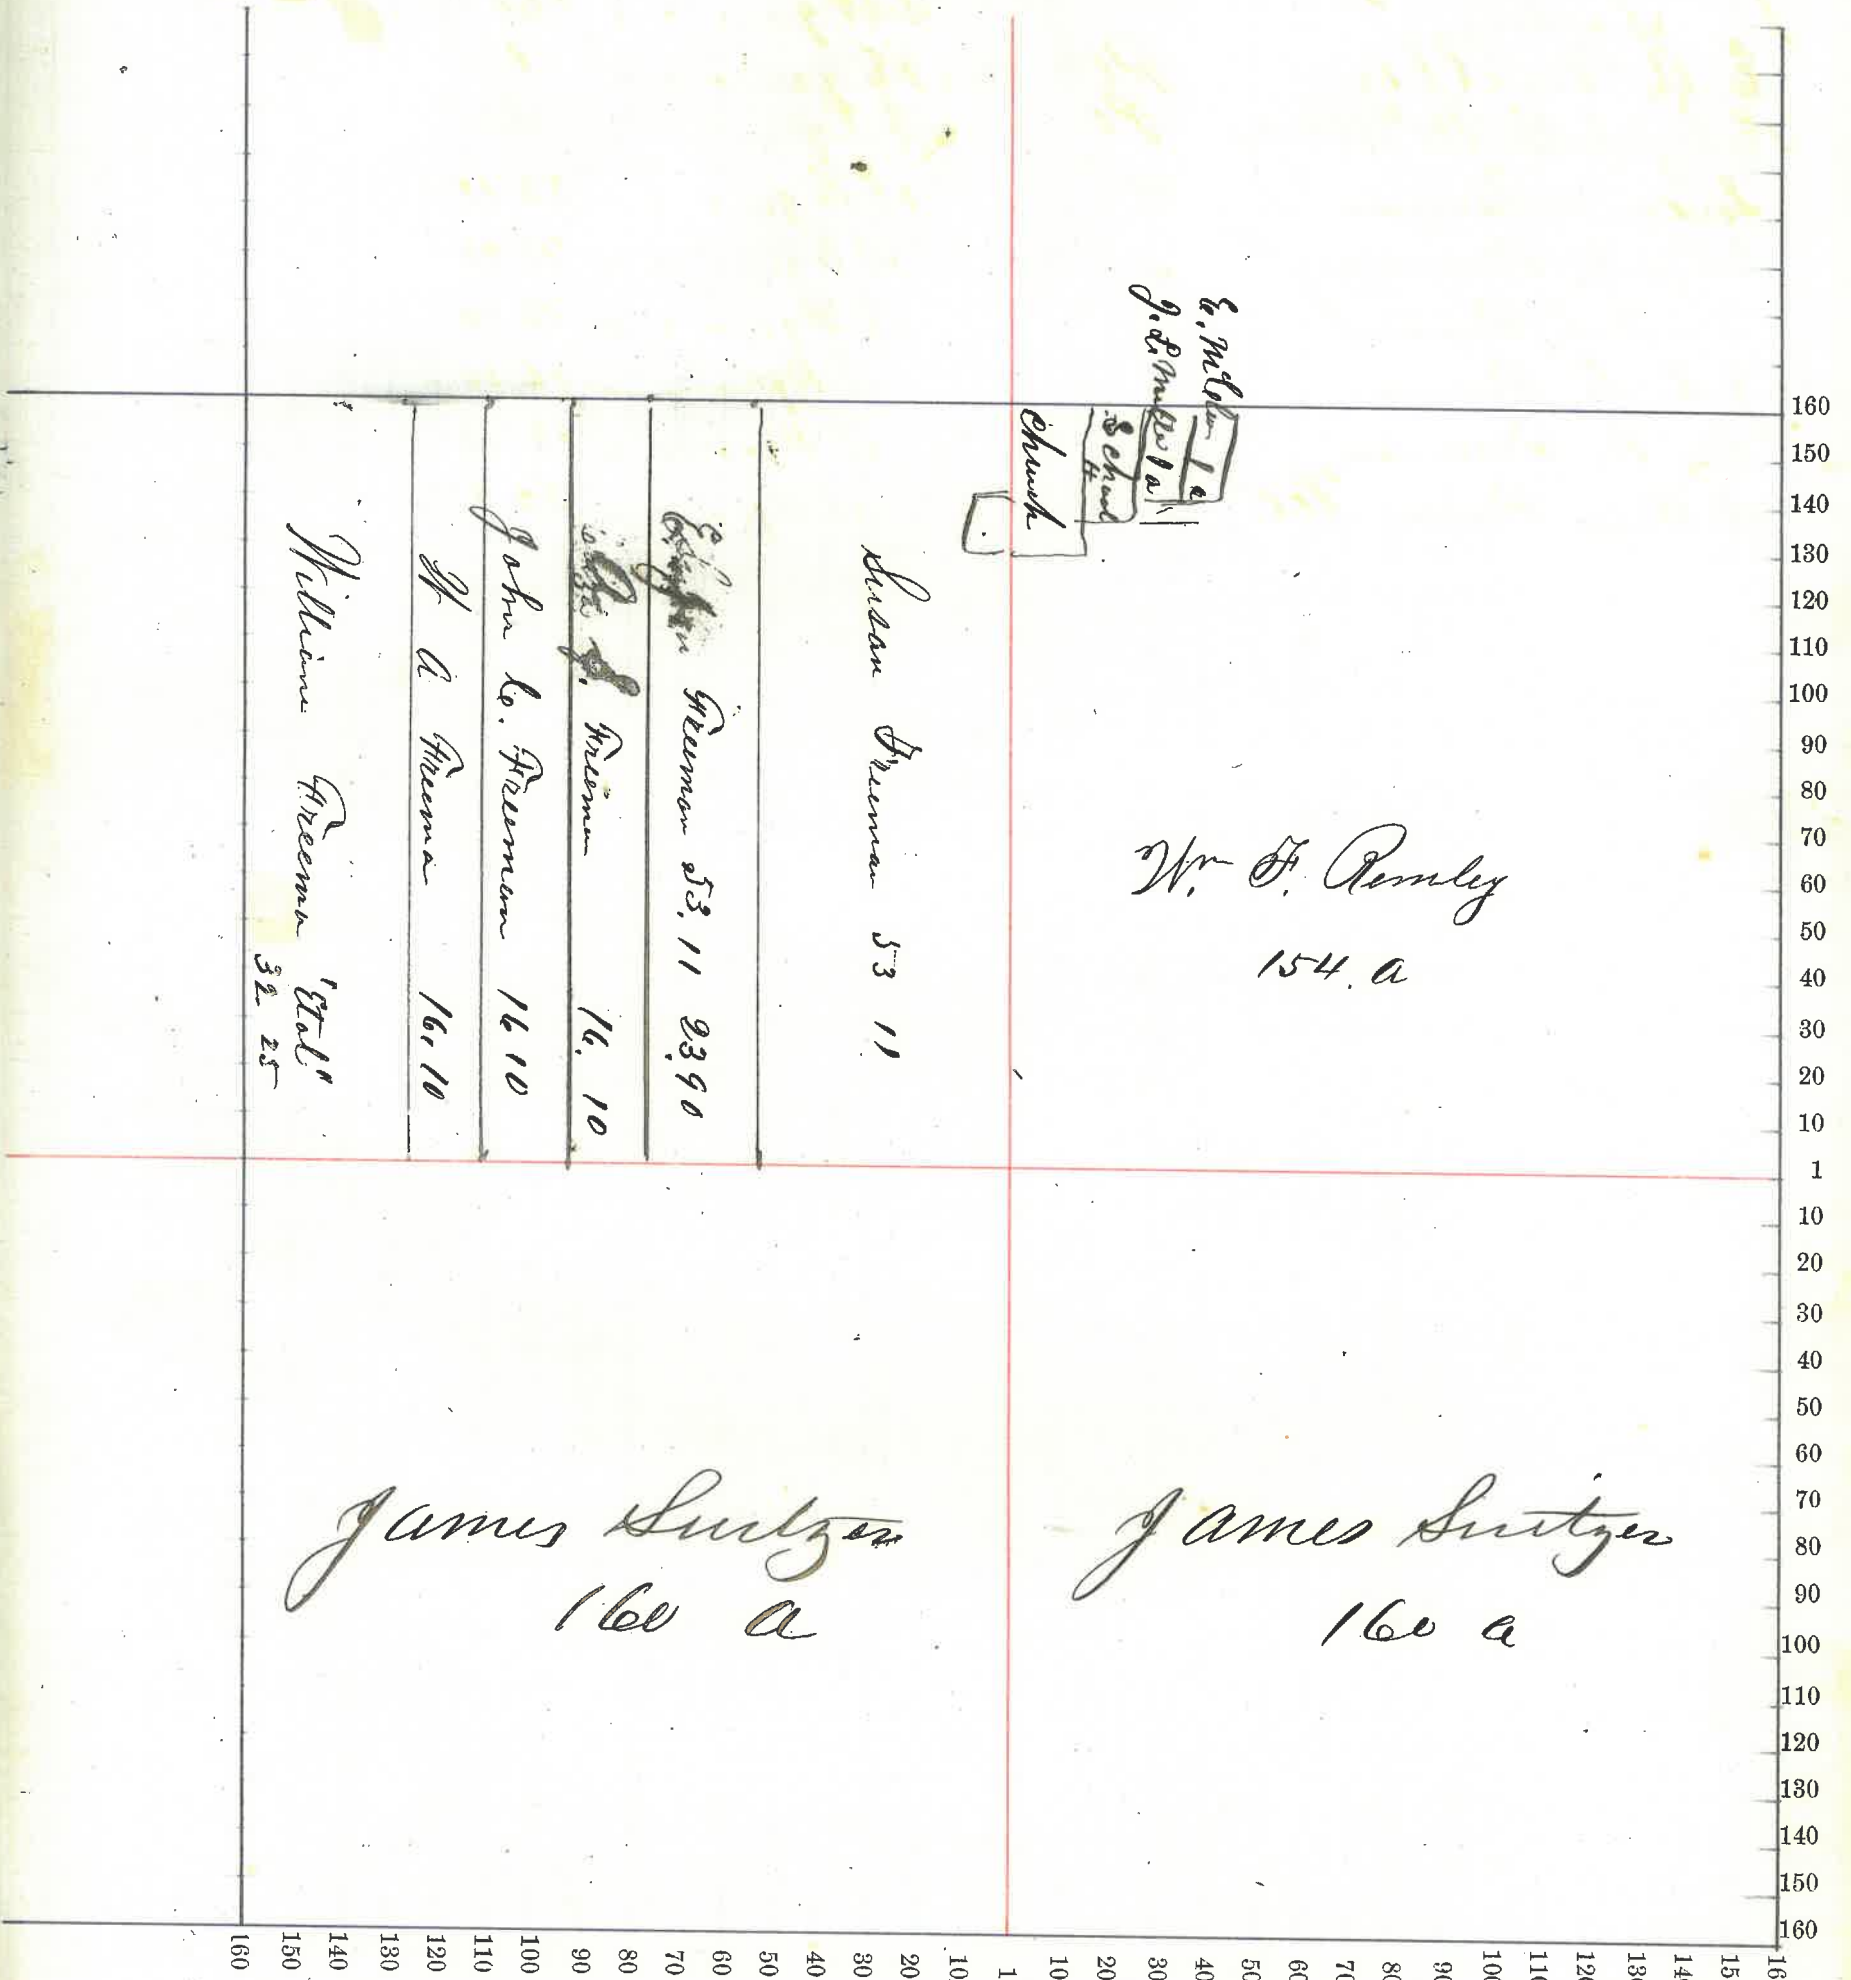 E. McClen 1 a
J. L. Miller 1 a
School
H
Church
Wm F. Remley
154. a
Susan Freeman 53 11
E Freeman 53.11 23.90
J. Freeman 16.10
John C. Freeman 16 10
W A Freema 16.10
William Freema "Etal"
32 25
James Suitzer
160 a
James Suitzer
160 a
160
150
140
130
120
110
100
90
80
70
60
50
40
30
20
10
1
10
20
30
40
50
60
70
80
90
100
110
120
130
140
150
160
160 150 140 130 120 110 100 90 80 70 60 50 40 30 20 10 1 10 20 30 40 50 60 70 80 90 100 110 120 130 140 15 16